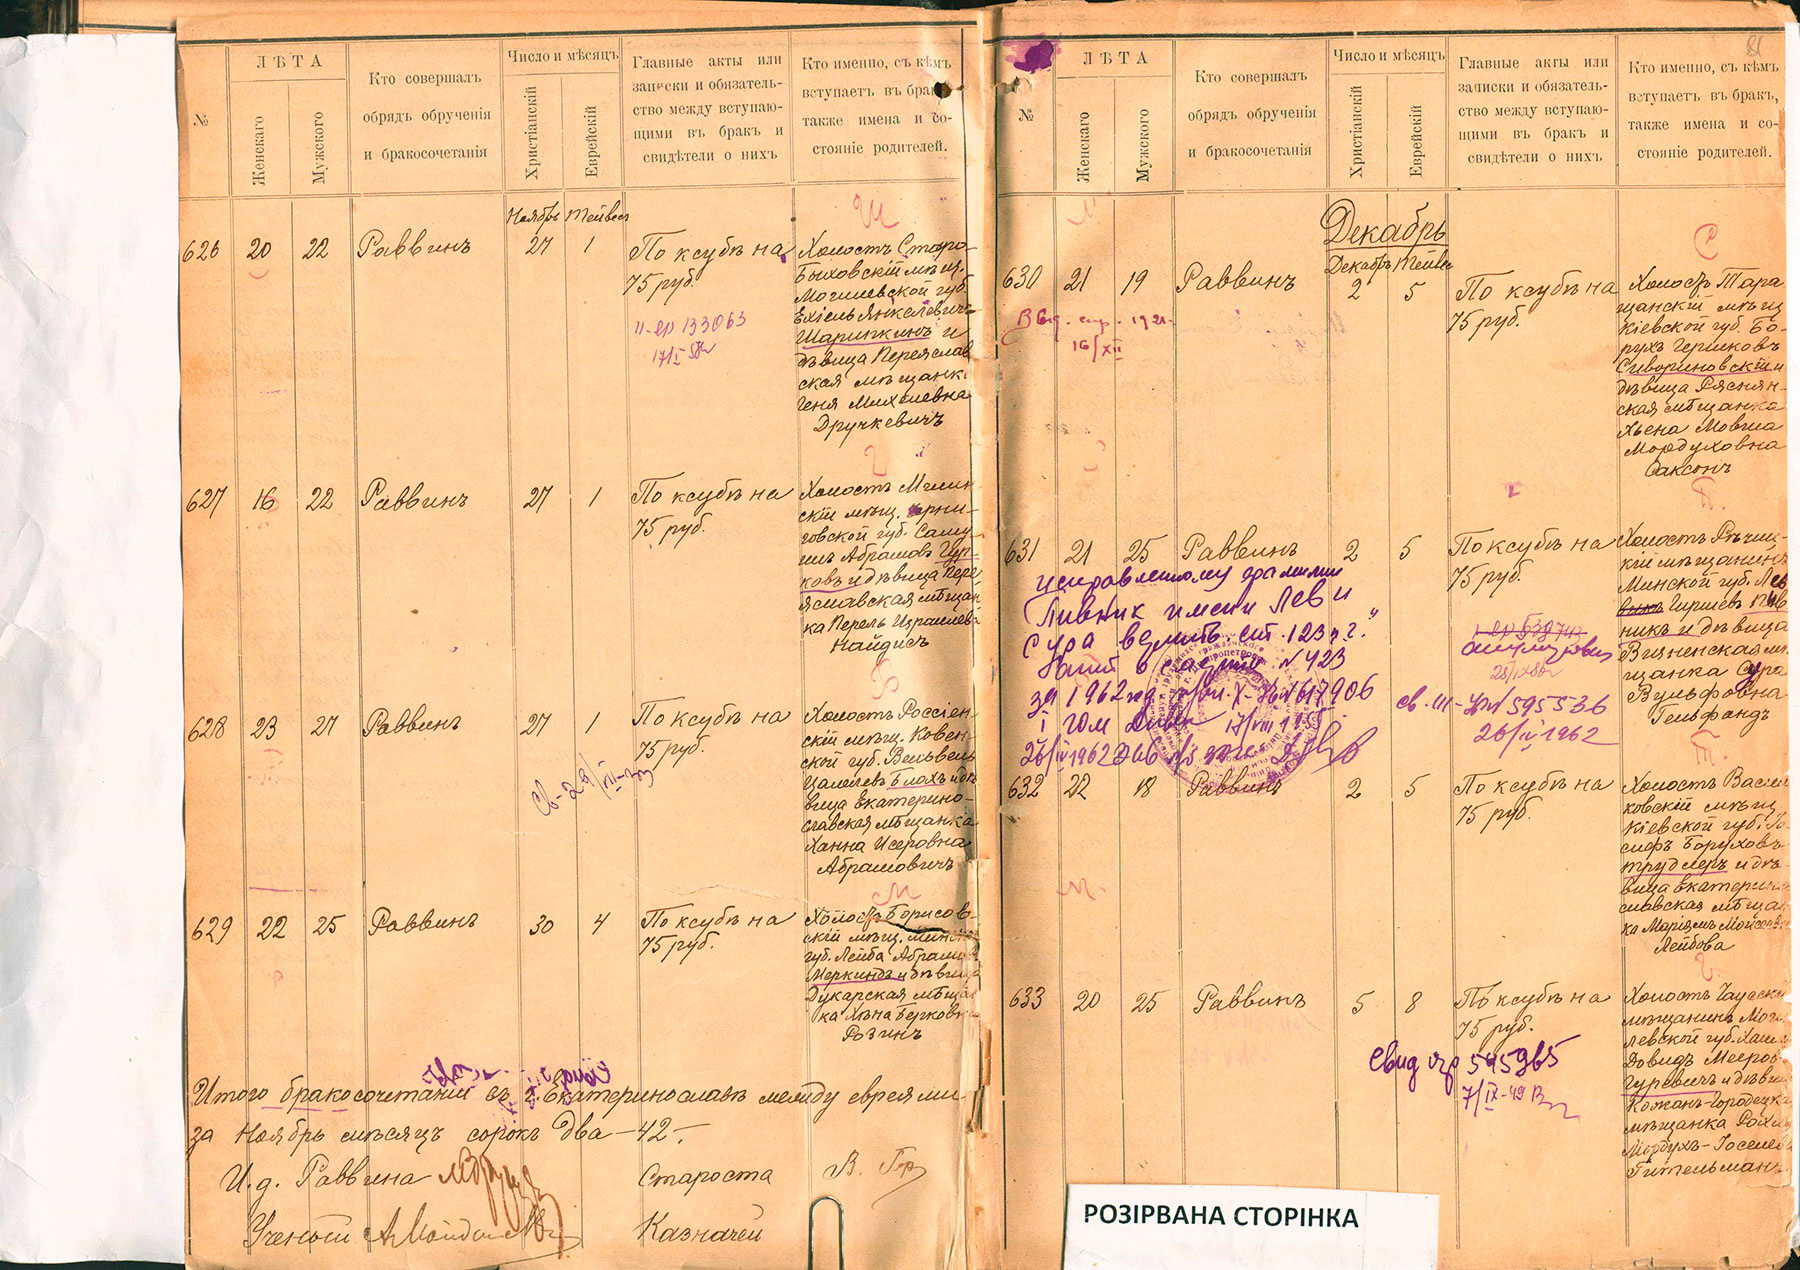 №
ЛѢТА
Женскаго
Мужского
Кто совершалъ
обрядъ обрученія
и бракосочетанія
Число и мѣсяцъ
Христіанскій
Еврейскій
Главные акты или
записки и обязатель-
ство между вступаю-
щими въ бракъ и
свидѣтели о нихъ
Кто именно, съ кѣмъ
вступаетъ въ бракъ,
также имена и со-
стояніе родителей.
Ноябрь Тейвес
626 20 22 Раввинъ 27 1
По ксубѣ на
75 руб.
133063
Холостъ Старо-
Быховскій мѣщ.
Могилевской губ.
Ехіель Янкелевичъ
Шарипкинъ и
дѣвица Переяслав
ская мѣщанка
Геня Михелевна
Друкевичъ
627 16 22 Раввинъ 27 1
По ксубѣ на
75 руб.
Холостъ Мглин
скій мѣщ. Черни-
говской губ. Саму-
илъ Абрамовъ Гур-
ковъ и дѣвица Пере
яславская мѣщан
ка Перель Израилева
Найдисъ
628 23 27 Раввинъ 27 1
По ксубѣ на
75 руб.
Холостъ Россіен-
скій мѣщ. Ковен-
ской губ. Вельвель
Цалелевъ Блохъ и дѣ
вица Екатерино-
славская мѣщанка
Ханна Исеровна
Абрамовичъ
629 22 25 Раввинъ 30 4
По ксубѣ на
75 руб.
Холостъ Борисов-
скій мѣщ. Минск
губ. Лейба Абрамов
Меркинъ и дѣвица
Дукарская мѣщан
ка Хьена Берковн
Розинъ
Итого бракосочетаній въ г. Екатеринославѣ между евреями
за Ноябрь мѣсяцъ сорокъ два —42—
И. д. Раввина
Староста
Ученый
Казначей
81
№
ЛѢТА
Женскаго
Мужского
Кто совершалъ
обрядъ обрученія
и бракосочетанія
Число и мѣсяцъ
Христіанскій
Еврейскій
Главные акты или
записки и обязатель-
ство между вступаю-
щими въ бракъ и
свидѣтели о нихъ
Кто именно, съ кѣмъ
вступаетъ въ бракъ,
также имена и со-
стояніе родителей.
Декабрь
Декабрь Тейвес
630 21 19 Раввинъ 2 5
По ксубѣ на
75 руб.
16/XII
Холостъ Тара
щанскій мѣщ
Кіевской губ. Бо-
рухъ Гершковъ
Сивориновскій и
дѣвица Ряснян-
ская мѣщанка
Хьена Мовша
Мордуховна
Саксонъ
631 21 25 Раввинъ 2 5
По ксубѣ на
75 руб.
Исправленному фамилии
Пивник имени Леви
Сура верить. ст. 123
№ 423
за 1962 год
26/IV 1962
св. III- 595536
26/IV 1962
Холостъ Рѣчиц-
кій мѣщанинъ
Минской губ. Лев
Гиршевъ Пив
никъ и дѣвица
Визненская мѣ
щанка Сура
Вульфовна
Гельфандъ
632 22 18 Раввинъ 2 5
По ксубѣ на
75 руб.
Холостъ Василь
ковскій мѣщ
Кіевской губ. Іо-
сифъ Боруховъ
Трудлеръ и дѣ-
вица Екатерино
славская мѣщан
ка Маріямъ Мойсеевна
Лейбова
633 20 25 Раввинъ 5 8
По ксубѣ на
75 руб.
Свид 545965
7/IX-49
Холостъ Чаусскій
мѣщанинъ Моги
левской губ. Хаим
Довидъ Мееров
Гуревичъ и дѣвиц
Кожан-Городецк
мѣщанка Рохля
Мордухъ-Іоселева
Гительманъ
РОЗІРВАНА СТОРІНКА